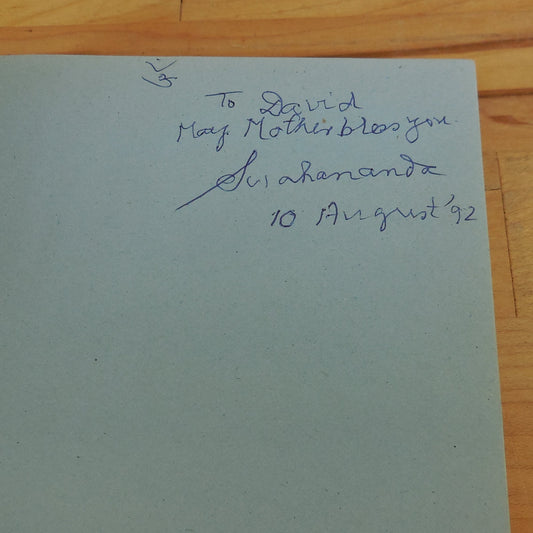 ওঁ
To David
May Mother bless you.
Swahananda
10 August '92